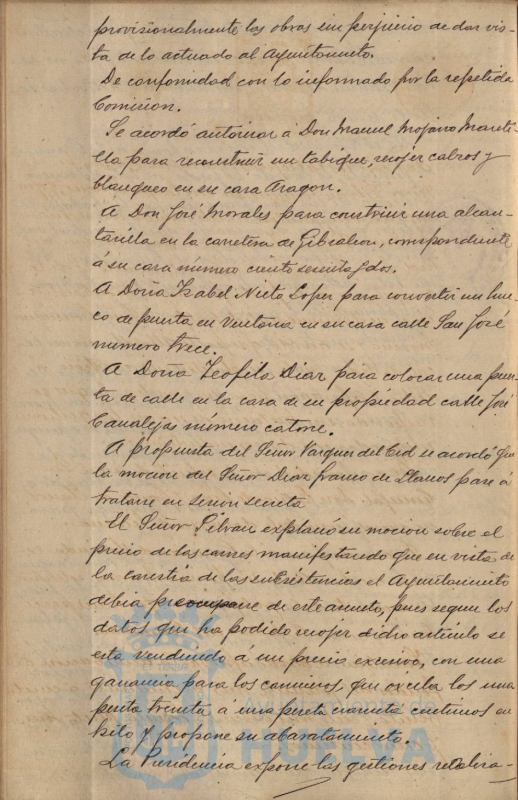 provisionalmente las obras sin perjuicio de dar vis-
ta de lo actuado al Ayuntamiento.
De conformidad con lo informado por la repetida
Comision.
Se acordó autorizar á Don Manuel Mojarro Mareti-
lla para reconstruir un tabique, recojer calzos y
blanqueo en su casa Aragon.
A Don José Morales para construir una alcan-
tarilla en la carretera de Gibraleon, correspondiente
á su casa número ciento sesenta y dos.
A Doña Isabel Nieto Lopez para convertir un hue-
co de puerta en ventana en su casa calle San José
número trece.
A Doña Teofila Diaz para colocar una puer-
ta de calle en la casa de su propiedad calle José
Canalejas número catorce.
A propuesta del Señor Vazquez del Cid se acordó que
la mocion del Señor Diaz Franco de Llanos pase á
tratarse en sesion secreta
El Señor Silvan explanó su mocion sobre el
precio de las carnes manifestando que en vista de
la carestia de las subsistencias el Ayuntamiento
debia preocuparse de este asunto, pues segun los
datos que ha podido recojer dicho articulo se
esta vendiendo á un precio excesivo, con una
ganancia para los carniceros que oscila los una
peseta treinta á una peseta cuarenta centimos en
kilo y propone su abaratamiento.
La Presidencia expone las gestiones realiza-
HUELVA